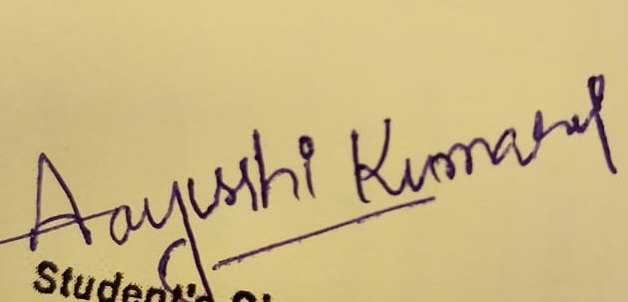 Aayushi Kumari
Student's